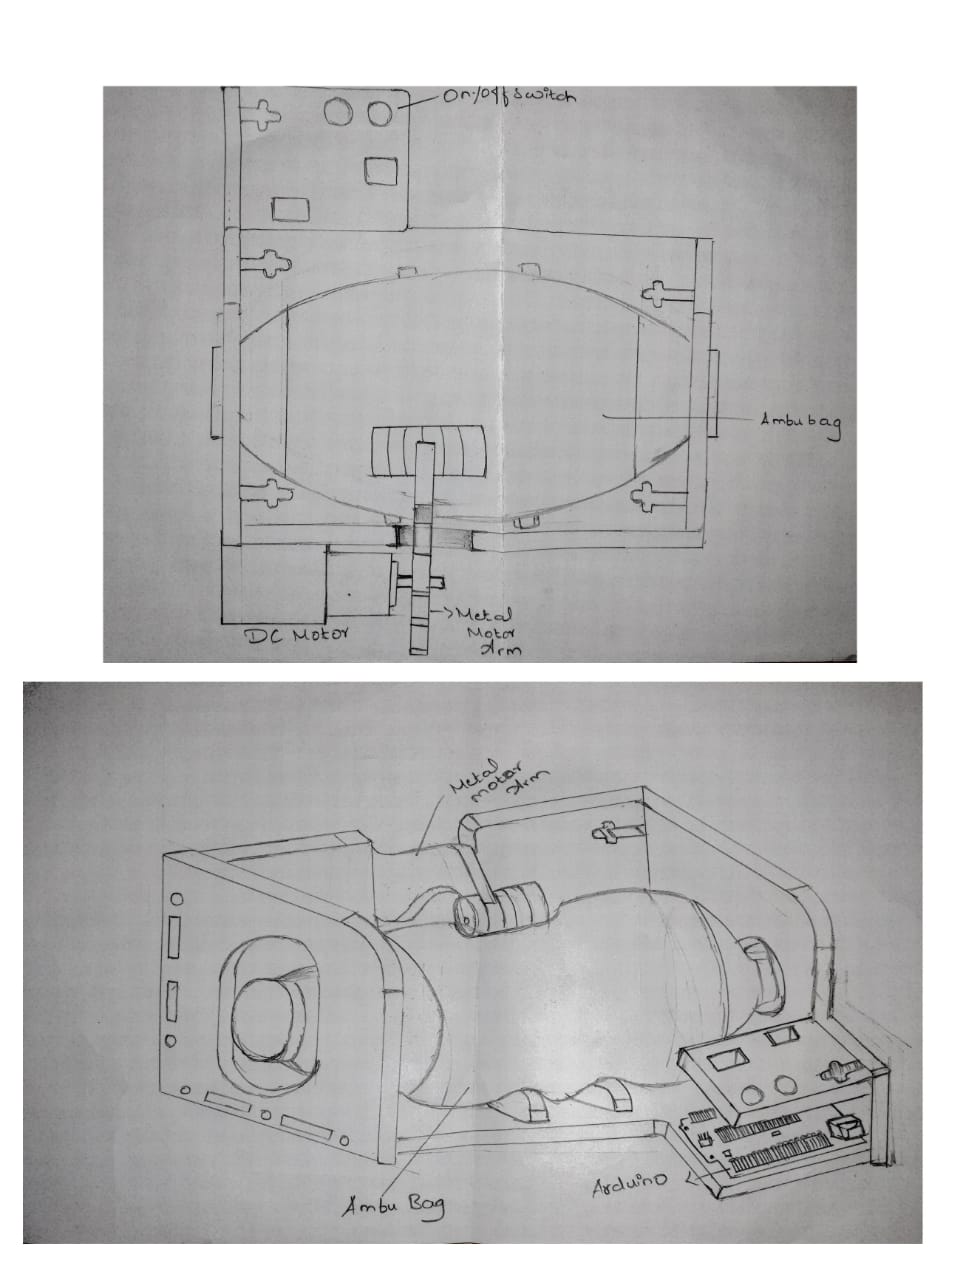 On/Off Switch
Ambu bag
DC Motor
Metal
Motor
Arm
Metal
motor
Arm
Arduino
Ambu Bag